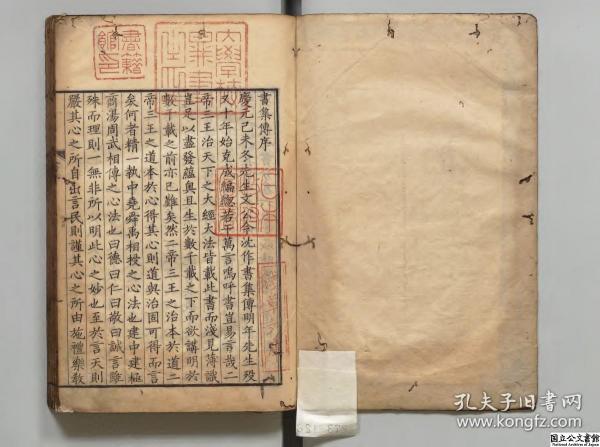 書集傳序
慶元己未冬先生文公令沈作書集傳明年先生歿
又十年始克成編總若干萬言嗚呼書豈易言哉二
帝三王治天下之大經大法皆載此書而淺見薄識
豈足以盡發蘊奥且生於數千載之下而欲講明於
數千載之前亦已難矣然二帝三王之治本於道二
帝三王之道本於心得其心則道與治固可得而言
矣何者精一執中堯舜禹相授之心法也建中建極
商湯周武相傳之心法也曰德曰仁曰敬曰誠言雖
殊而理則一無非所以明此心之妙也至於言天則
嚴其心之所自出言民則謹其心之所由施禮樂敎
書籍
館印
孔夫子旧书网
www.kongfz.com
国立公文書館
National Archives of Japan